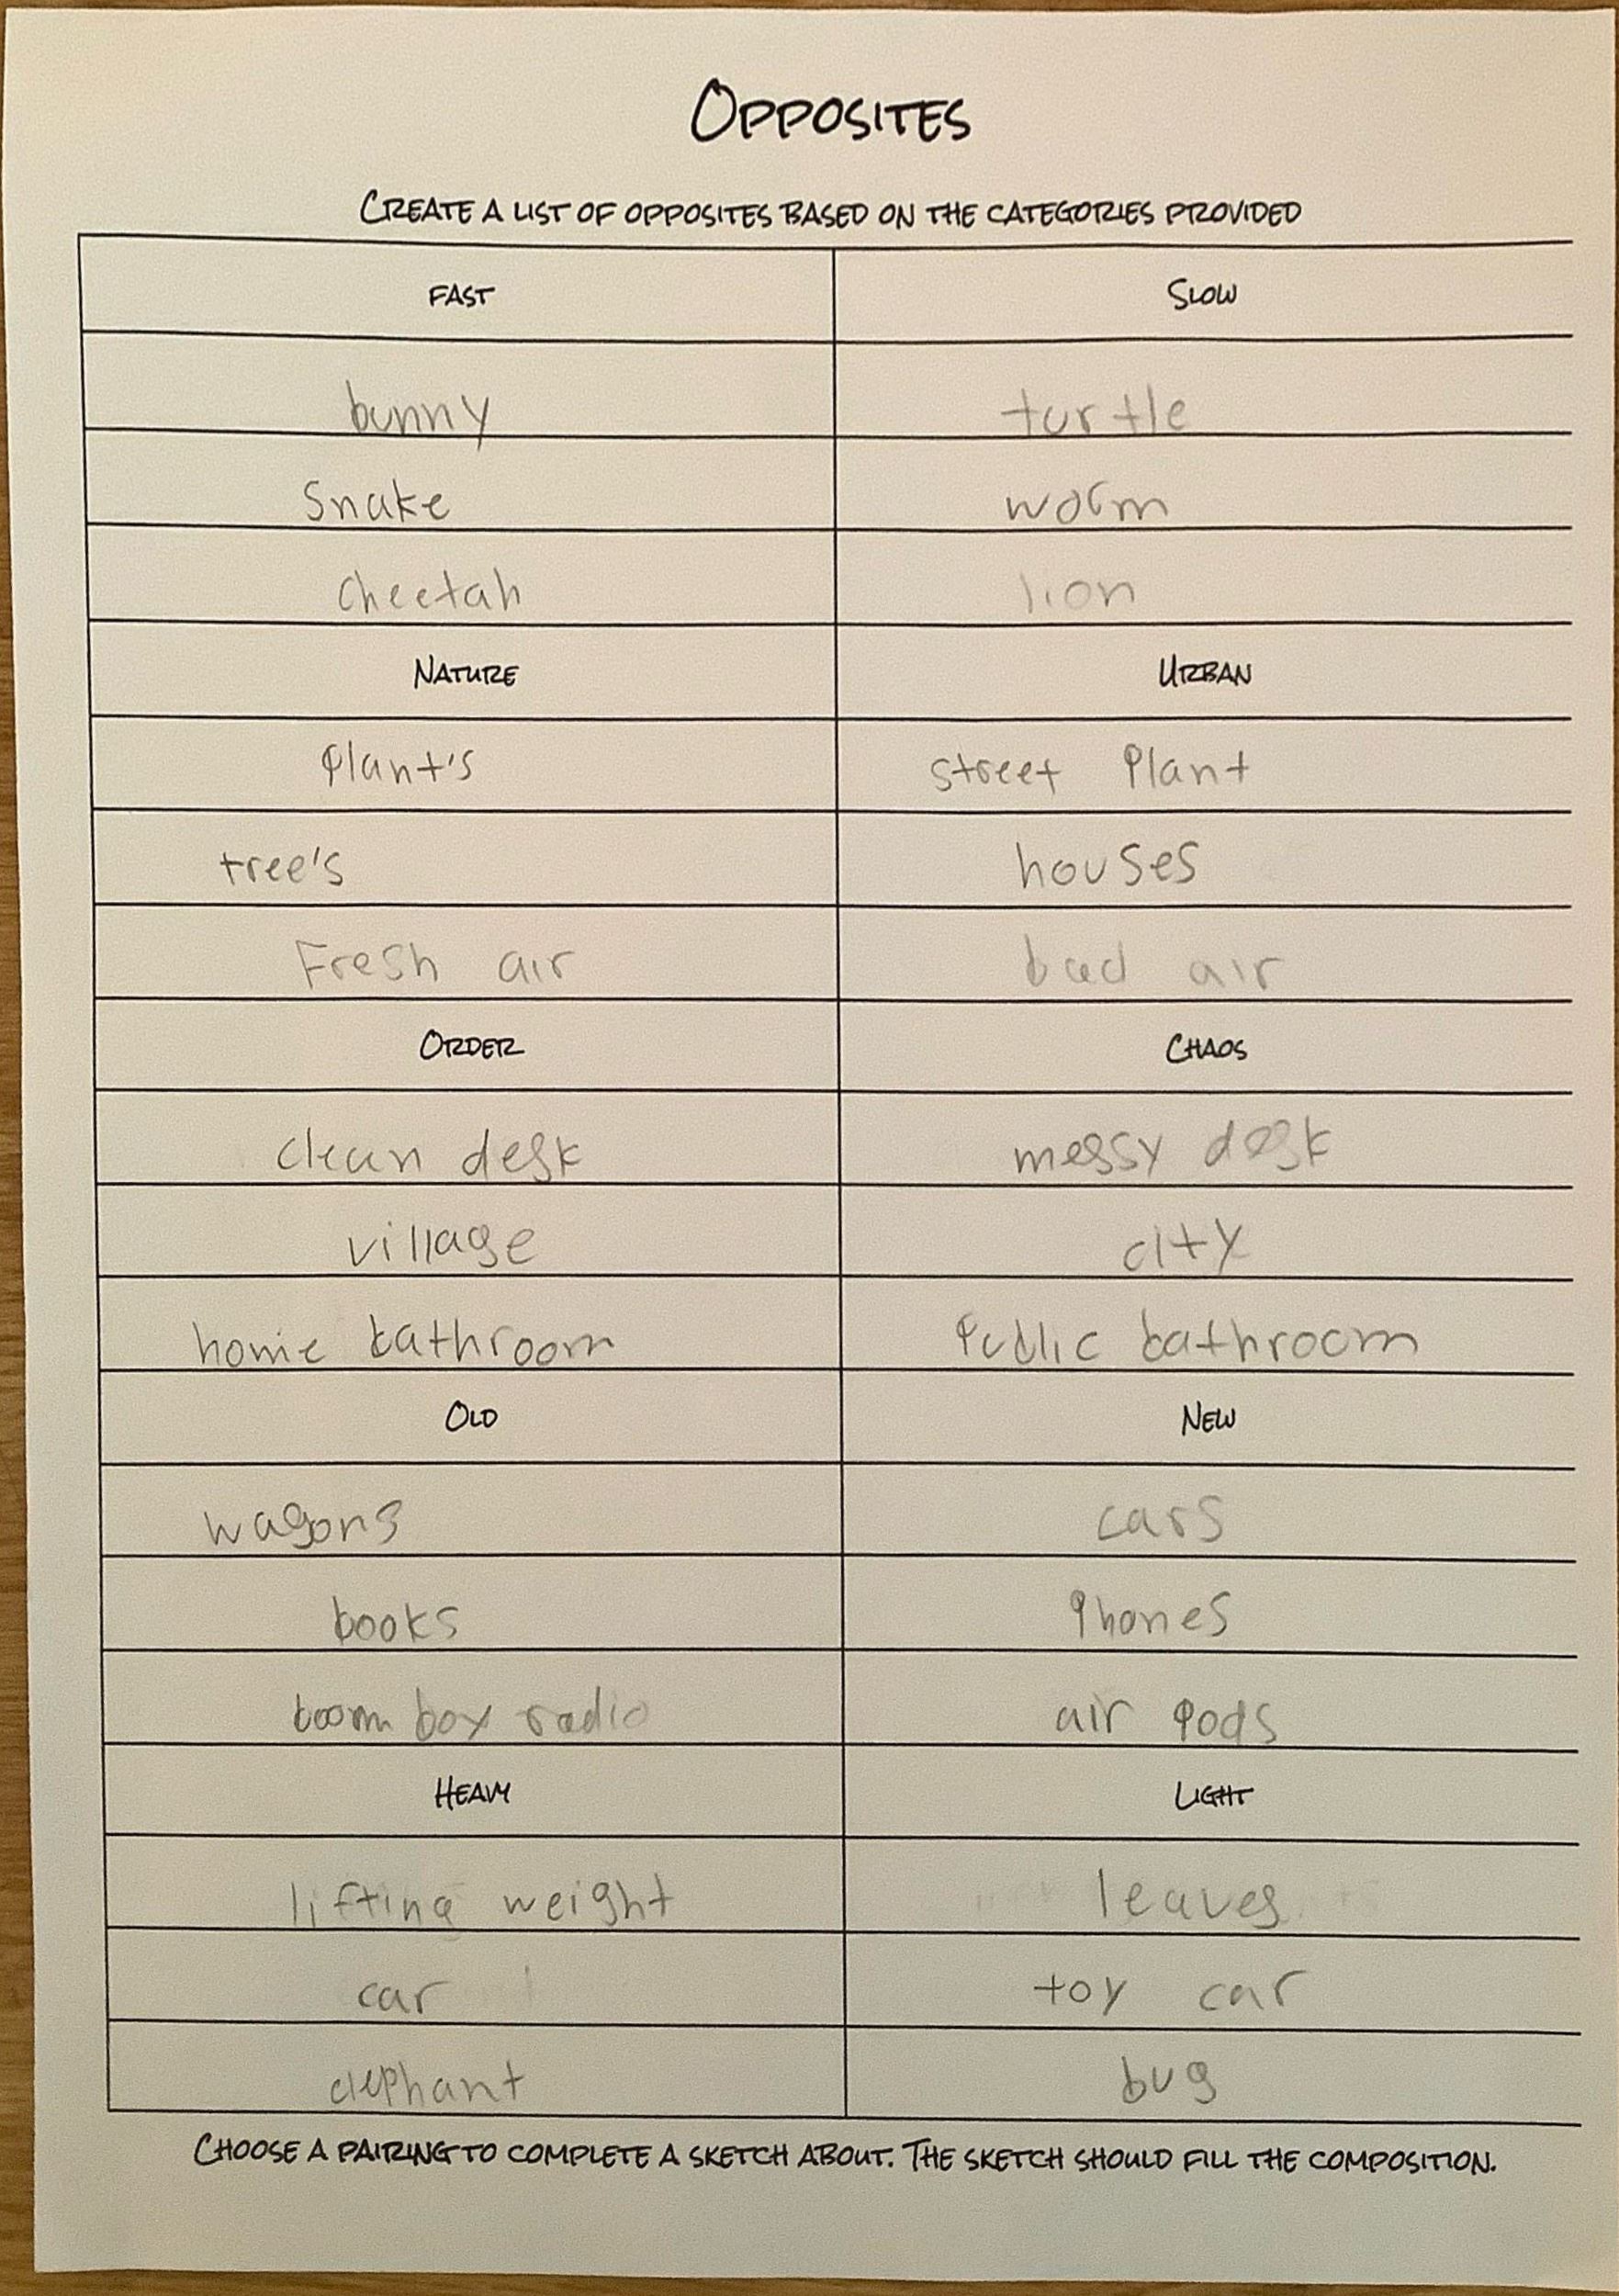 OPPOSITES
CREATE A LIST OF OPPOSITES BASED ON THE CATEGORIES PROVIDED
FAST SLOW
bunny turtle
Snake worm
Cheetah lion
NATURE URBAN
Plant's street Plant
tree's houses
Fresh air bad air
ORDER CHAOS
clean desk messy desk
village city
home bathroom Public bathroom
OLD NEW
wagons cars
books Phones
boom box radio air Pods
HEAVY LIGHT
lifting weight leaves
car toy car
elephant bug
CHOOSE A PAIRING TO COMPLETE A SKETCH ABOUT. THE SKETCH SHOULD FILL THE COMPOSITION.